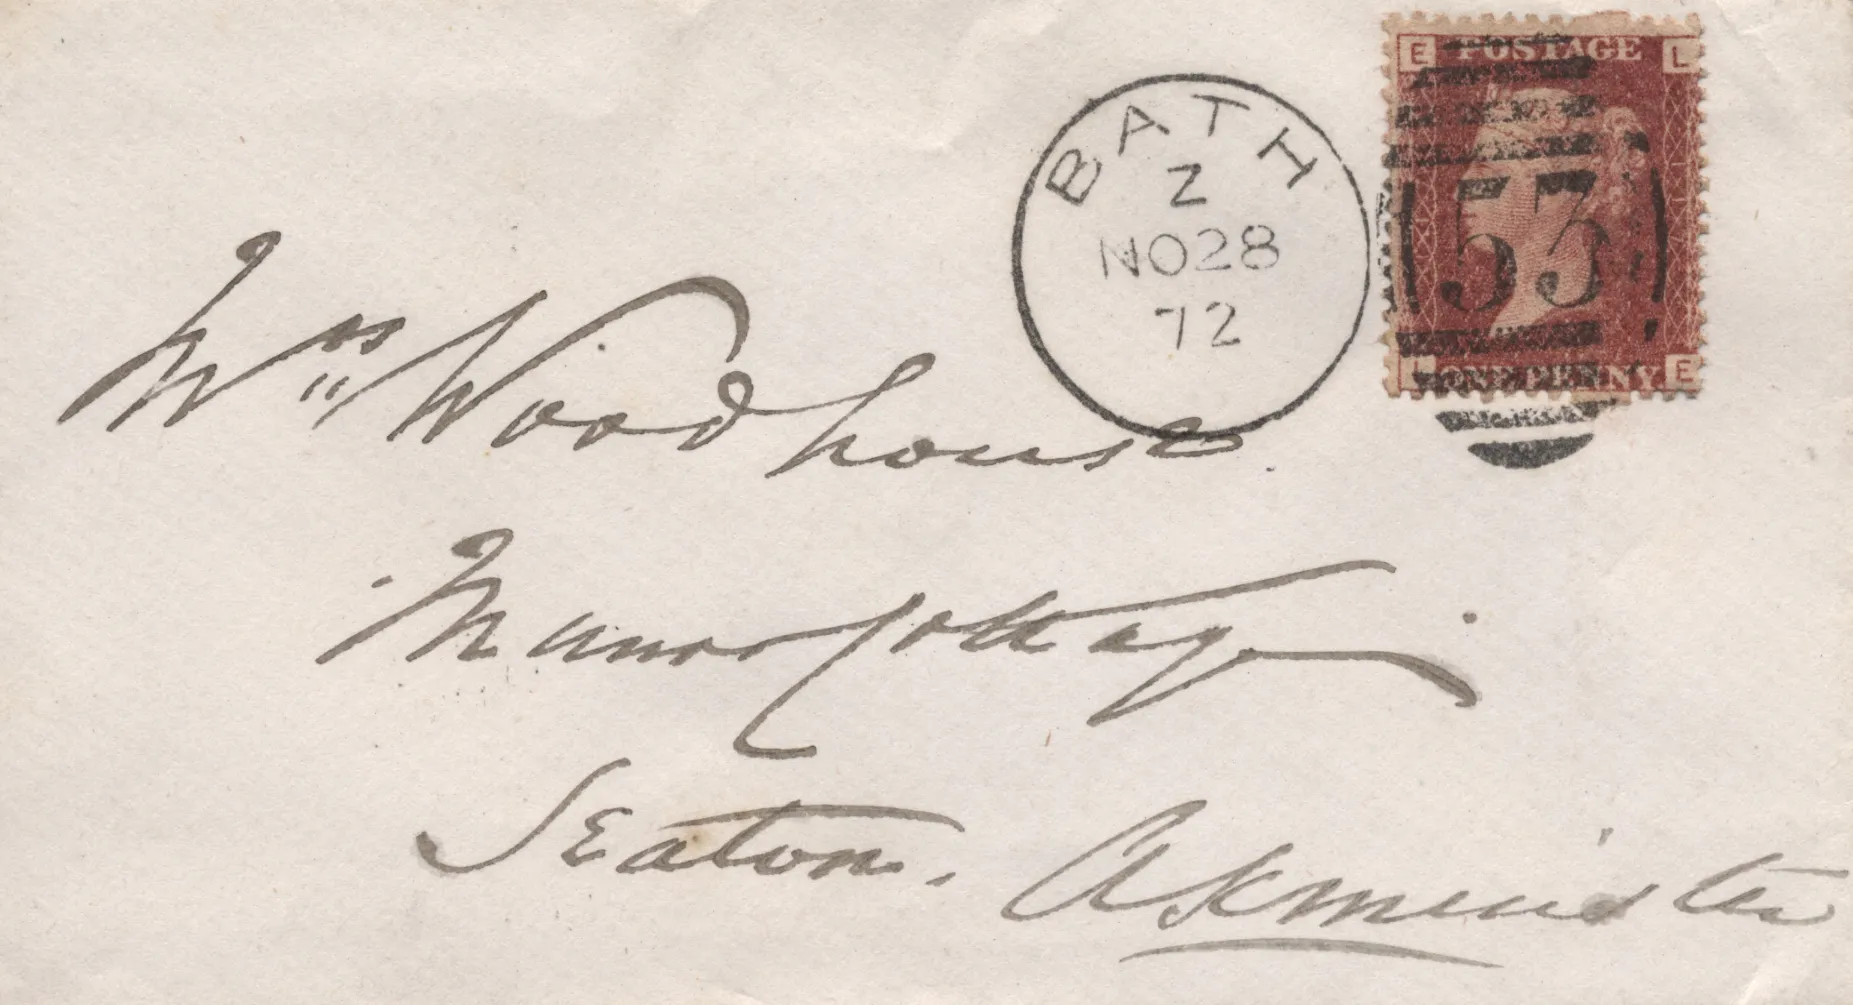 E POSTAGE L
BATH
Z
NO 28
72
53
L ONE PENNY E
Mrs Woodhouse
Manor Cottage
Seaton. Axminster